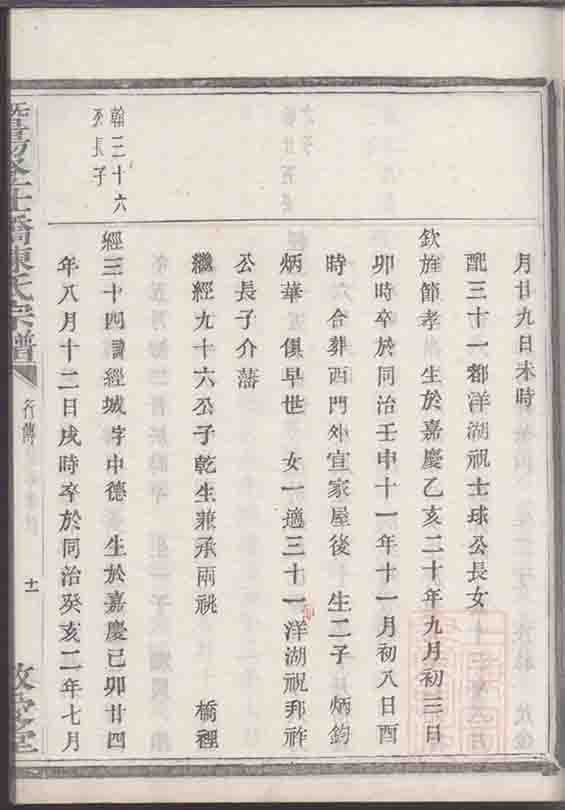 月廿九日未時
配三十一都洋湖祝士球公長女
欽旌節孝 生於嘉慶乙亥二十年九月初三日
卯時卒於同治壬申十一年十一月初八日酉
時 合葬西門外宜家屋後 生二子 炳鈞
炳華 俱早世 女一適三十一洋湖祝邦祚
公長子介藩
繼經九十六公子乾生兼承兩祧 橋裡
經三十四諱經城字中德 生於嘉慶己卯廿四
年八月十二日戌時卒於同治癸亥二年七月
韓三十六
長子
橋陳氏宗譜
行傳
十一